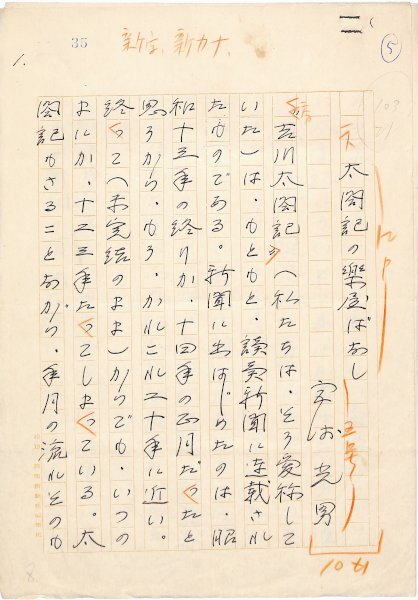 35
新字、新カナ、
二
5
1.
太閤記の楽屋ばなし
吉川太閤記（私たちは、そう愛称して
いた）は、もともと、讀賣新聞に連載され
たものである。新聞に出はじめたのは、昭
和十三年の終りか、十四年の正月だったと
思うから、もう、かれこれ二十年に近い。
終って（未完結のまま）からでも、いつの
まにか、十二三年たってしまっている。太
閤記もさることながら、年月の流れそのも
8